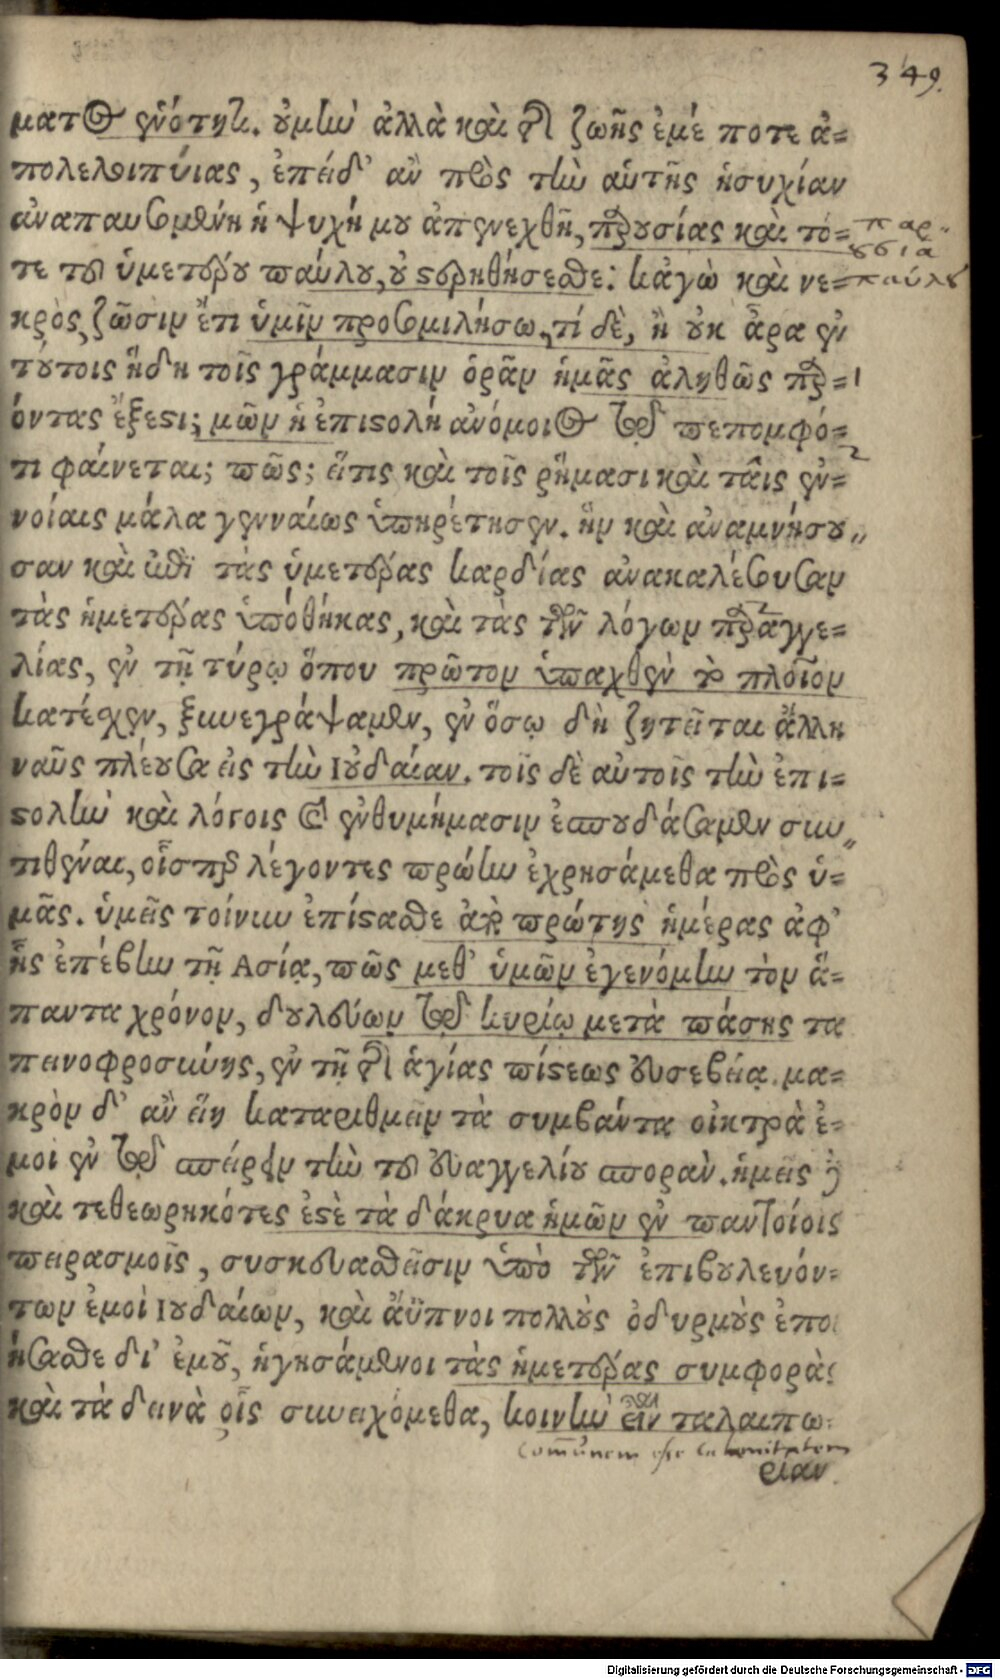 349.
ματος ἑνότητι. οὐ μὴν ἀλλὰ καὶ τῆς ζωῆς ἐμέ ποτε ἀ=
πολελοιπυίας, ἐπειδ' ἂν πρὸς τὴν αὐτῆς ἡσυχίαν
ἀναπαυσομένη ἡ ψυχή μου ἀπενεχθῇ, παρουσίας καὶ τό=
παρ-
ουσιά
τε τοῦ ὑμετέρου παύλου, οὐ στερηθήσεσθε: κἀγὼ καὶ νε=
παύλου
κρὸς ζῶσιν ἔτι ὑμῖν προσομιλήσω, τί δὲ, ἢ οὐκ ἆρα ἐν
τούτοις ἤδη τοῖς γράμμασιν ὁρᾶν ἡμᾶς ἀληθῶς παρ=
όντας ἔξεστι; μῶν ἡ ἐπιστολὴ ἀνόμοιος τῷ πεπομφό=
τι φαίνεται; πῶς; ἥτις καὶ τοῖς ῥήμασι καὶ ταῖς ἐν=
νοίαις μάλα γενναίως ὑπηρέτησεν. ἣν καὶ ἀναμνήσου"
σαν καὶ ἐπὶ τὰς ὑμετέρας καρδίας ἀνακαλέσουσαν
τὰς ἡμετέρας ὑποθήκας, καὶ τὰς τῶν λόγων παραγγε=
λίας, ἐν τῇ τύρῳ ὅπου πρῶτον ὑπαχθὲν τὸ πλοῖον
κατέσχεν, ξυνεγράψαμεν, ἐν ὅσῳ δὴ ζητεῖται ἄλλη
ναῦς πλέουσα εἰς τὴν Ιουδαίαν. τοῖς δὲ αὐτοῖς τὴν ἐπι=
στολὴν καὶ λόγοις καὶ ἐνθυμήμασιν ἐσπουδάσαμεν συν"
τιθέναι, οἷσπερ λέγοντες πρώην ἐχρησάμεθα πρὸς ὑ=
μᾶς. ὑμεῖς τοίνυν ἐπίστασθε ἀπὸ πρώτης ἡμέρας ἀφ'
ἧς ἐπέβην τῇ Ασίᾳ, πῶς μεθ' ὑμῶν ἐγενόμην τὸν ἅ=
παντα χρόνον, δουλεύων τῷ κυρίῳ μετὰ πάσης τα
πεινοφροσύνης, ἐν τῇ τῆς ἁγίας πίστεως εὐσεβείᾳ. μα=
κρὸν δ' ἂν εἴη καταριθμεῖν τὰ συμβάντα οἰκτρὰ ἐ=
μοὶ ἐν τῷ σπείρειν τὴν τοῦ εὐαγγελίου σποράν. ὑμεῖς
καὶ τεθεωρηκότες ἐστὲ τὰ δάκρυα ἡμῶν ἐν παντοίοις
πειρασμοῖς, συσκευασθεῖσιν ὑπὸ τῶν ἐπιβουλευόν=
των ἐμοὶ Ιουδαίων, καὶ ἄϋπνοι πολλοὺς ὀδυρμοὺς ἐποι
ήσασθε δι' ἐμοῦ, ἡγησάμενοι τὰς ἡμετέρας συμφορὰς
καὶ τὰ δεινὰ οἷς συνειχόμεθα, κοινὴν εἶναι ταλαιπω=
communem esse calamitatem
ρίαν
Digitalisierung gefördert durch die Deutsche Forschungsgemeinschaft - DFG